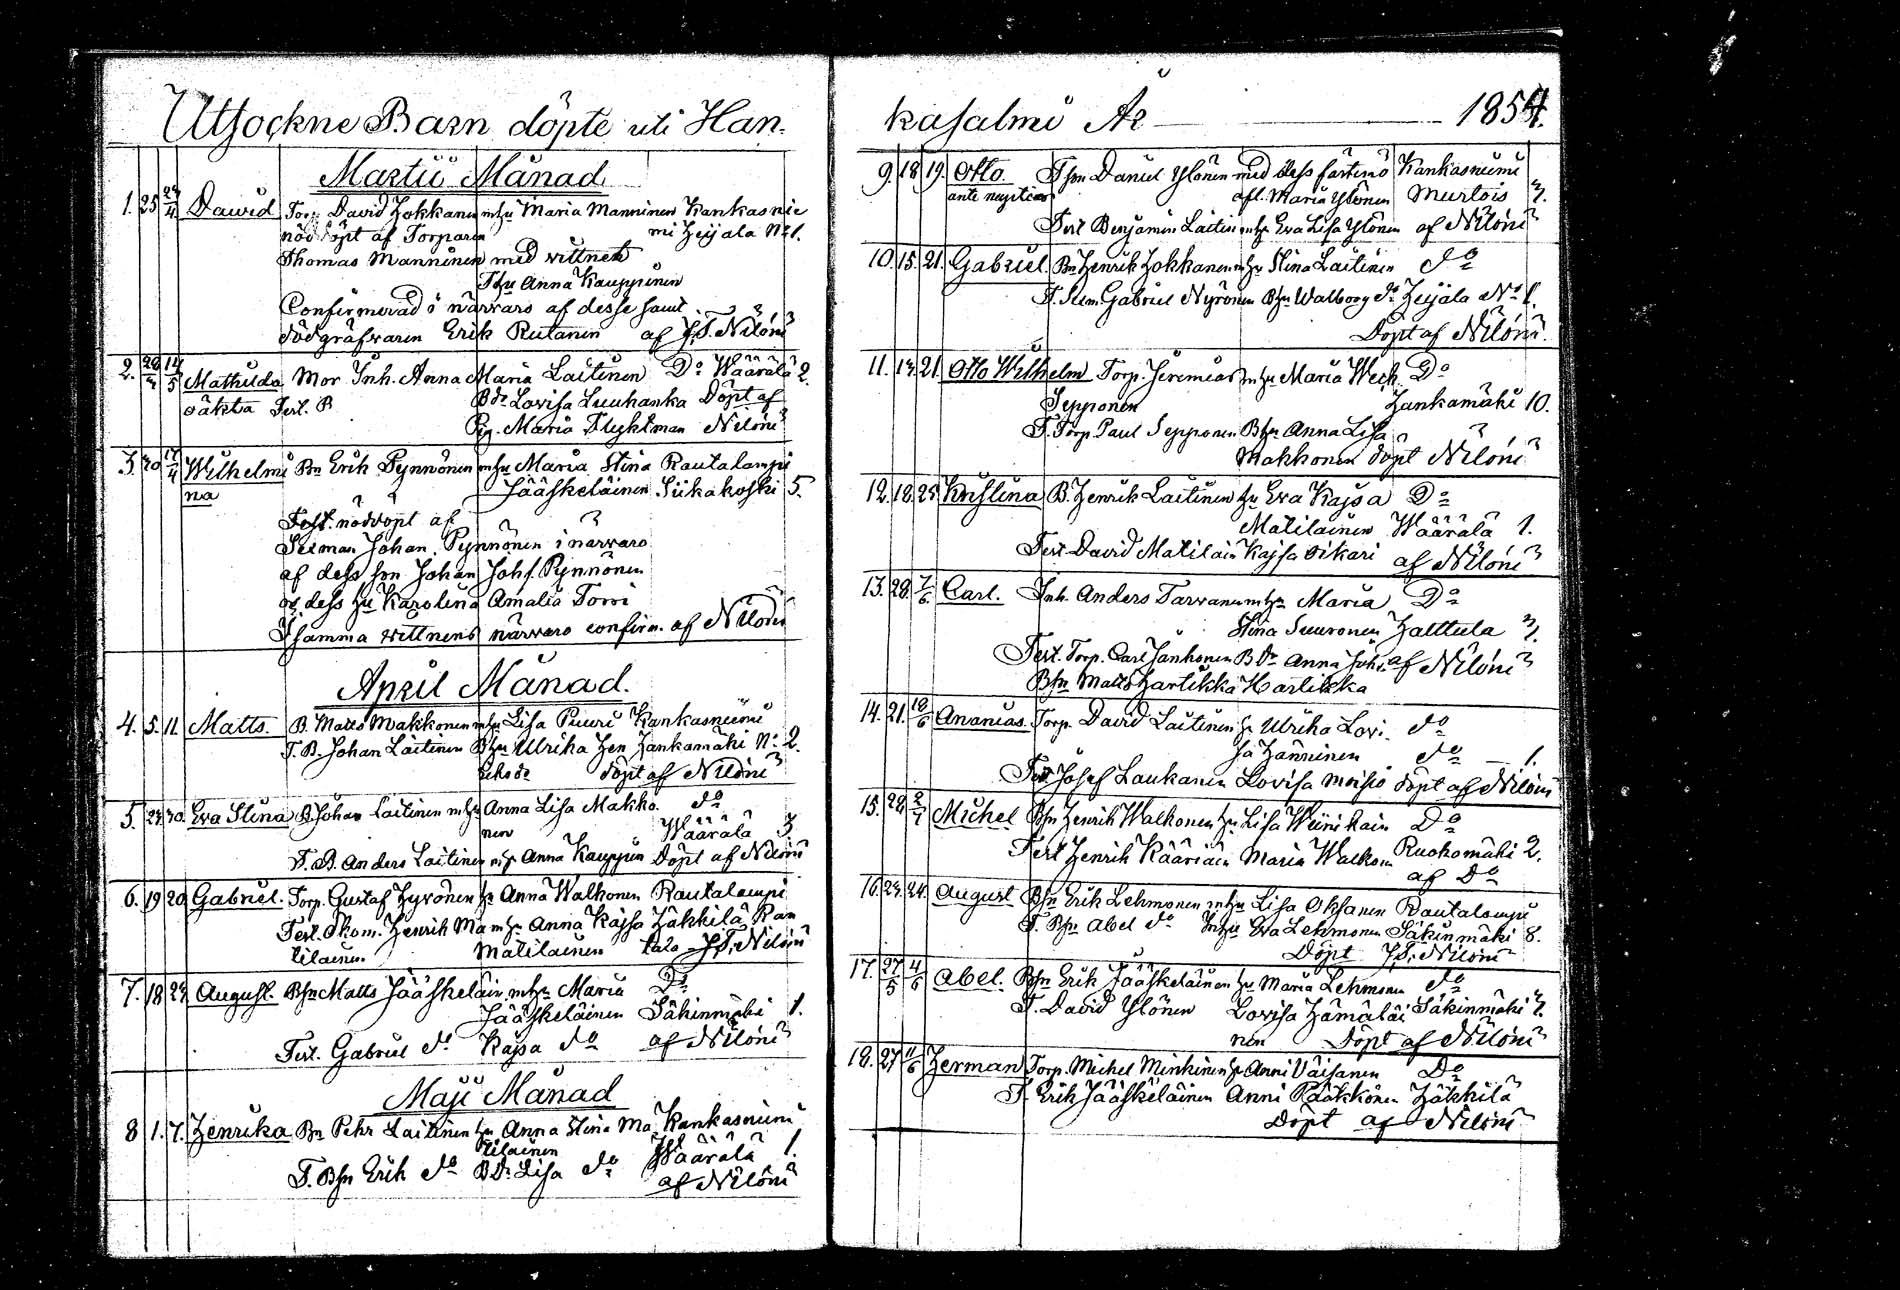 Utsockne Barn döpte uti Han-
Martii Månad
1. 25 24/4 David Torp. David Hokkanen m hu Maria Manninen Kankasnie
nöd döpt af Torparen mi Heijala No 1.
Thomas Manninen med vittnet
Thu Anna Kauppinen
Confirmerad i närvaro af desse samt
dödgräfvaren Erik Rutanen af J.T. Niloni
2. 14/5 Mathilda Mor Inh. Anna Maria Laitinen Do Wäärälä 2.
oäkta Test. B Bdr Lovisa Luuhanka Döpt af
Pig. Maria Flyktman Niloni
3. 30 17/4 Wilhelmi Bn Erik Pynnönen m hu Maria Stina Rautalampi
na Jääskeläinen Siikakoski 5.
Test. nöddöpt af
Sexman Johan Pynnönen i närvaro
af dess son Johan Johs. Pynnönen
og dess hu Karolina Amalia Torvi
I samma vittnens närvaro confirm. af Niloni
April Månad.
4. 5. 11. Matts. B. Matts Makkonen m hu Lisa Puuri Kankasniemi
T. B. Johan Laitinen B hu Ulrika Hen Hankamäki No 2.
döpt af Niloni
5. 23 30. Eva Stina B Johan Laitinen m hu Anna Lisa Makko- do
nen Wäärälä 3.
T. B. Anders Laitinen m hu Anna Kauppin Döpt af Niloni
6. 19 20 Gabriel. Torp. Gustaf Hyvönen hu Anna Walkonen Rautalampi
Test. Henrik Ma m hu Anna Kajsa Häkkilä Ran
tilainen Matilainen tala J.T. Niloni
7. 18 23 August. Bsn Matts Jääskeläin m hu Maria Do
Jääskeläinen Säkinmäki 1.
Test. Gabriel do Kajsa do af Niloni
Maji Månad
8 1. 7. Henrika Bn Pehr Laitinen hu Anna Stina Ma Kankasniemi
tilainen Wäärälä 1.
T. Bsn Erik do B Dr Lisa do af Niloni
kasalmi År 1854.
9. 18 19. Otto Tsn Daniel Ylönen med dess fästmö Kankasniemi
ante nuptias afl. Maria Ylönen Murtois 3.
Test Benjamin Laitin m hu Eva Lisa Ylönen af Niloni
10. 15. 21. Gabriel. Bn Henrik Hokkanen m hu Stina Laitinen do
T. Gabriel Nyrönen B hu Walborg do Heijala No 1.
Döpt af Niloni.
11. 13. 21. Otto Wilhelm Torp. Jeremias m hu Maria Weck Do
Sepponen Hankamäki 10.
T. Torp. Paul Sepponen Bhu Anna Lisa
Makkonen döpt Niloni
12. 18. 25. Kristina B. Henrik Laitinen hu Eva Kajsa Do
Matilainen Wäärälä 1.
Test David Matilain Kajsa Oikari af Niloni
13. 28. 7/6. Carl. Inh. Anders Tarvanen m hu Maria Do
Stina Suuronen Halttula 3.
Test. Torp. Carl Janhonen B Dr Anna Johs. af Niloni
Bsn Matts Hartikka Hartikka
14. 21. 10/6 Ananias. Torp. David Laitinen hu Ulrika Lovi- do
sa Hänninen do 1.
Test Josef Laukanen Lovisa döpt af Niloni
15. 28. 2/7 Michel Bsn Henrik Walkonen hu Lisa Wiinikain Do
Test Henrik Kääriäin Maria Walkon Ruokomäki 2.
af Do
16. 23. 24. August Bsn Erik Lehmonen m hu Lisa Oksanen Rautalampi
T. Bsn Abel do Eva Lehmonen Säkinmäki 8.
Döpt J.T. Niloni
17. 27/5 4/6 Abel. Bsn Erik Jääskeläinen hu Maria Lehmonen do
T. David Ylönen Lovisa Hämäläi Säkinmäki 7.
nen Döpt af Niloni
18. 27 11/6 Herman Torp. Michel Minkinen hu Anni Väisänen Do
T. Erik Jääskeläinen Anni Rääkkönen Häkkilä
Döpt af Niloni